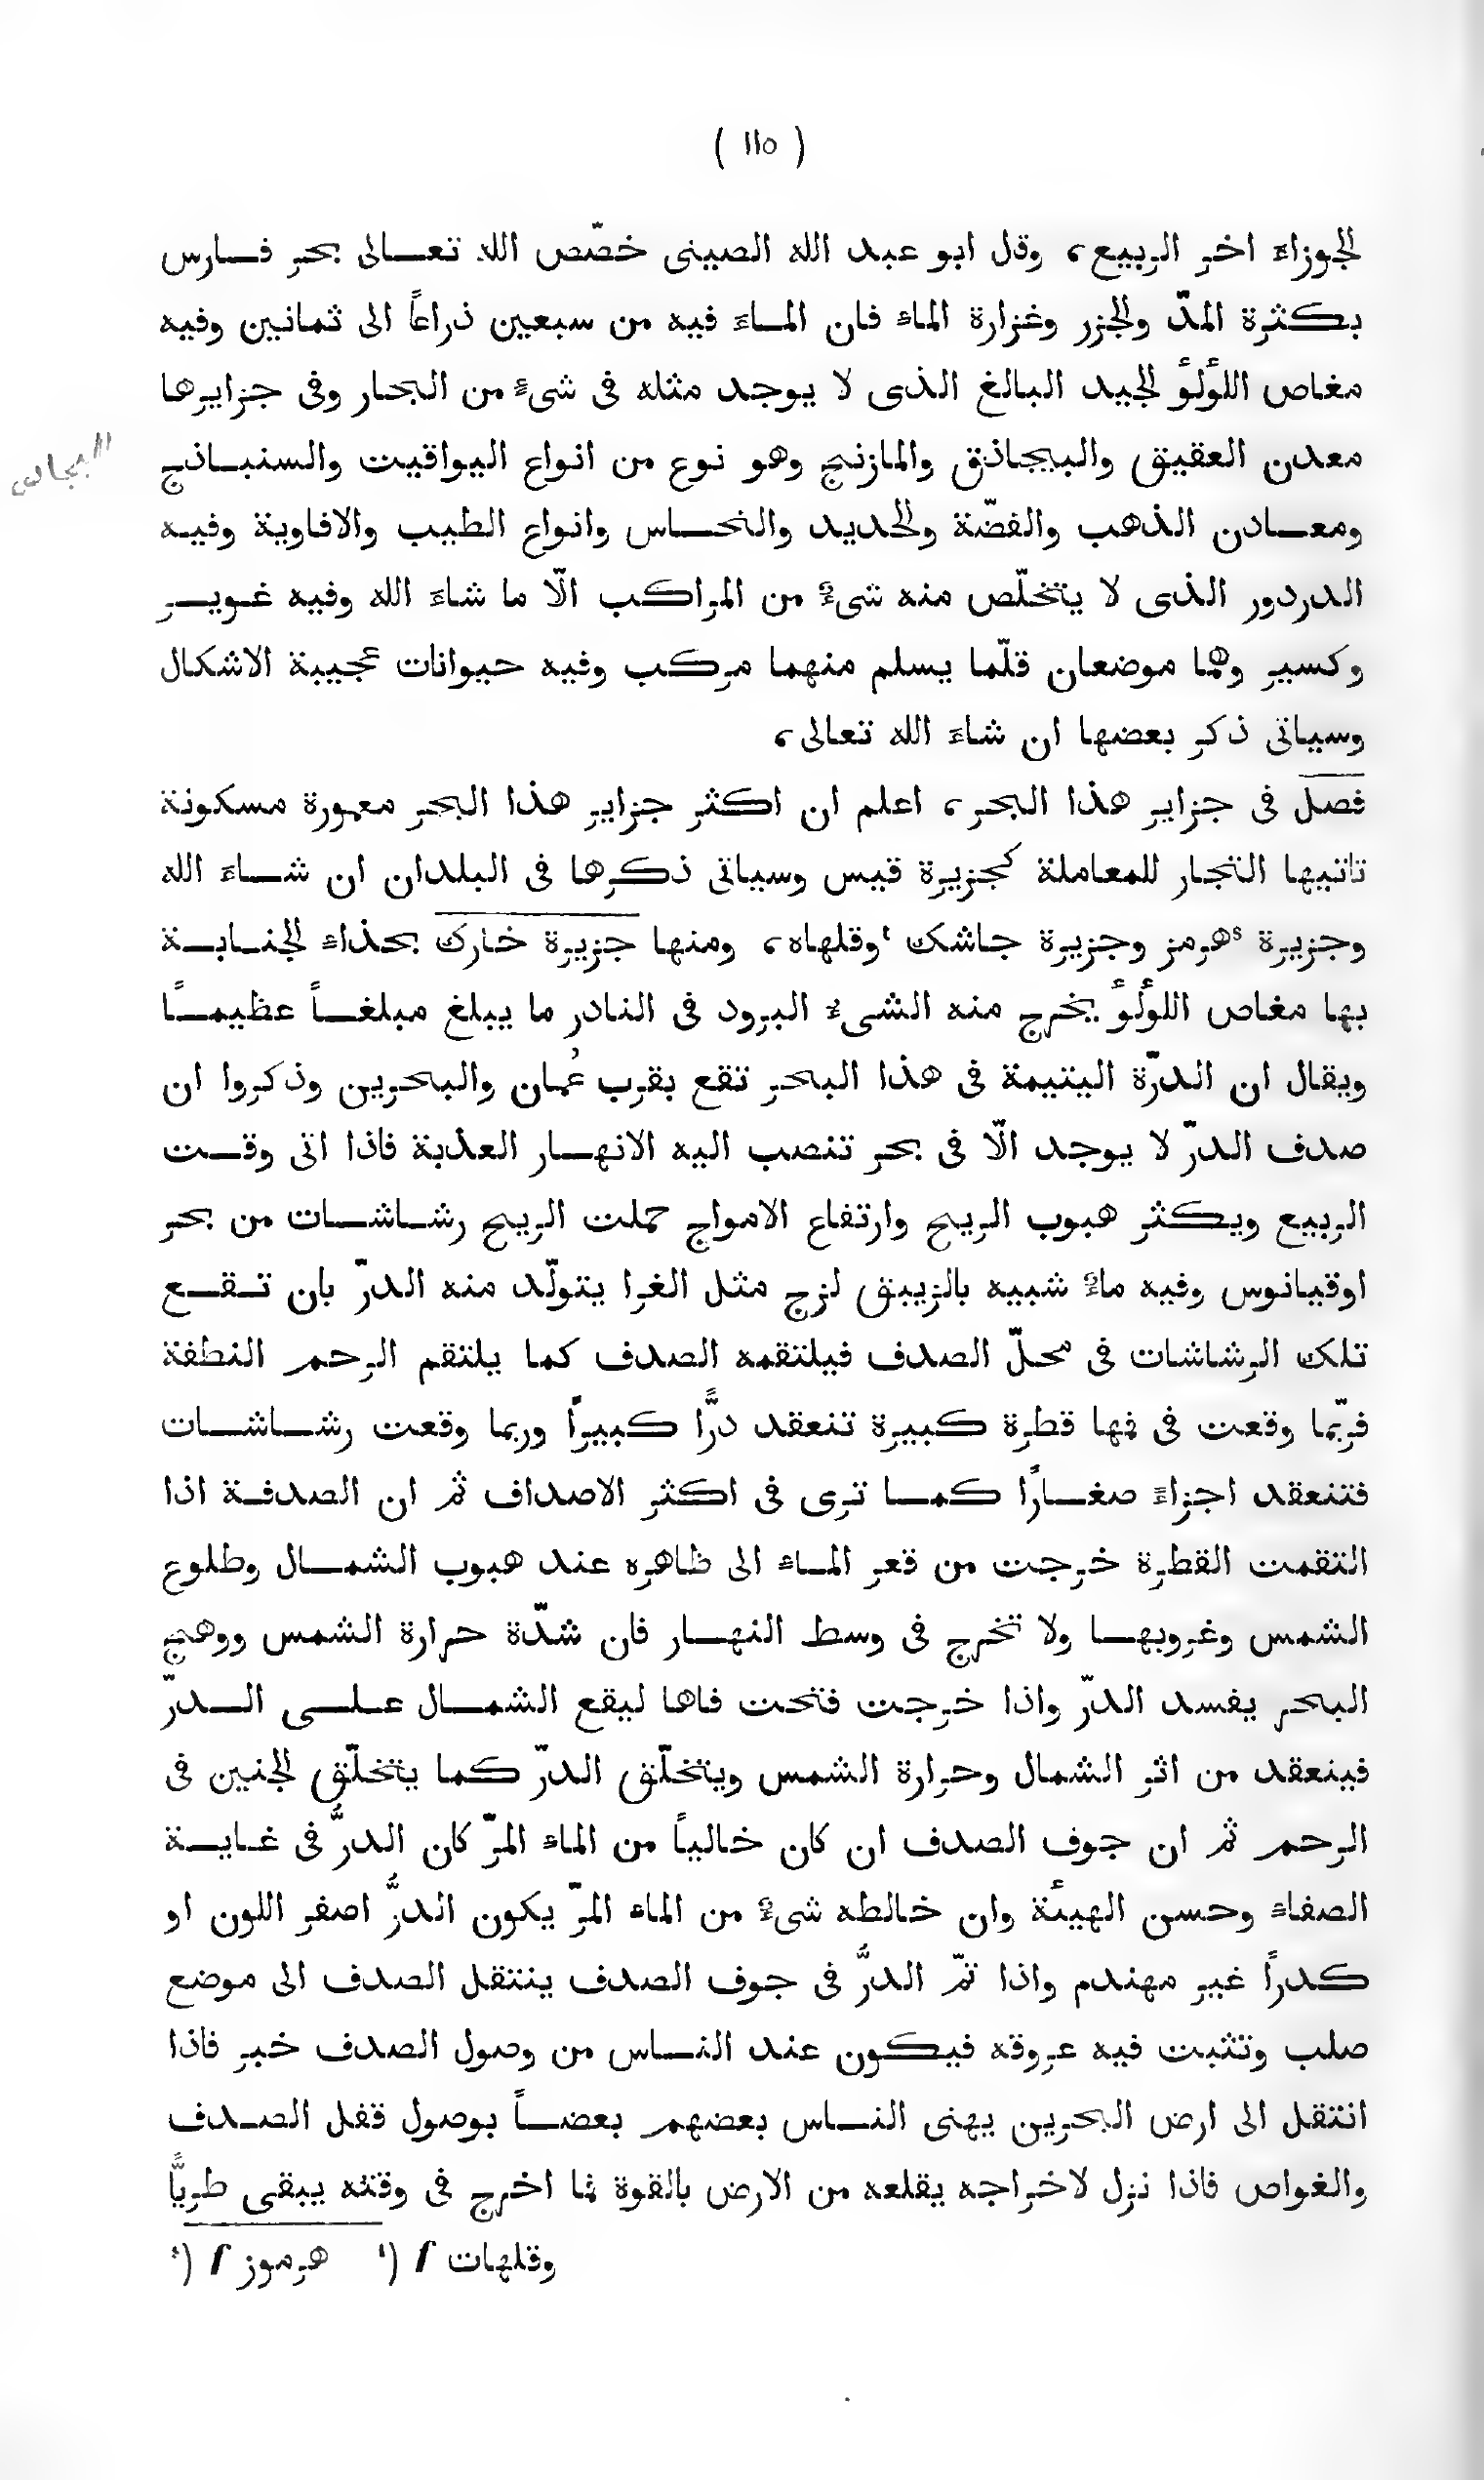 ( ١١٥ )
الجوزاء اخر الربيع، وقل ابو عبد الله الصينى خصّص الله تعالى بحر فارس
بكثرة المدّ والجزر وغزارة الماء فان الماءَ فيه من سبعين ذراعاً الى ثمانين وفيه
مغاص اللؤلؤ الجيد البالغ الذى لا يوجد مثله فى شىء من البحار وفى جزايرها
معدن العقيق والبيجاذق والمازنج وهو نوع من انواع اليواقيت والسنباذج
ومعادن الذهب والفضّة والحديد والنحاس وانواع الطيب والافاوية وفيه
الدردور الذى لا يتخلّص منه شىءٌ من المراكب الّا ما شاءَ الله وفيه غوير
وكسير وهما موضعان قلّما يسلم منهما مركب وفيه حيوانات عجيبة الاشكال
وسياتى ذكر بعضها ان شاءَ الله تعالى،
فصل فى جزاير هذا البحر، اعلم ان اكثر جزاير هذا البحر معمورة مسكونة
تاتيها التجار للمعاملة كجزيرة قيس وسياتى ذكرها فى البلدان ان شاءَ الله
وجزيرة s هرمز وجزيرة جاشك t وقلهاه، ومنها جزيرة خارك بحذاء الجنابة
بها مغاص اللؤلؤ يخرج منه الشىء البرود فى النادر ما يبلغ مبلغاً عظيماً
ويقال ان الدرّة اليتيمة فى هذا البحر تقع بقرب عُمان والبحرين وذكروا ان
صدف الدرّ لا يوجد الّا فى بحر تنصب اليه الانهار العذبة فاذا اتى وقت
الربيع ويكثر هبوب الريح وارتفاع الامواج حملت الريح رشاشات من بحر
اوقيانوس وفيه ماءٌ شبيه بالزيبق لزج مثل الغرا يتولّد منه الدرّ بان تقع
تلك الرشاشات فى محلّ الصدف فيلتقمه الصدف كما يلتقم الرحم النطفة
فربّما وقعت فى فمها قطرة كبيرة تنعقد درًّا كبيراً وربما وقعت رشاشات
فتنعقد اجزاءً صغاراً كما ترى فى اكثر الاصداف ثم ان الصدفة اذا
التقمت القطرة خرجت من قعر الماء الى ظاهره عند هبوب الشمال وطلوع
الشمس وغروبها ولا تخرج فى وسط النهار فان شدّة حرارة الشمس ووهج
البحر يفسد الدرّ واذا خرجت فتحت فاها ليقع الشمال على الدرّ
فينعقد من اثر الشمال وحرارة الشمس ويتخلّق الدرّ كما يتخلّق الجنين فى
الرحم ثم ان جوف الصدف ان كان خالياً من الماء المرّ كان الدرُّ فى غاية
الصفاء وحسن الهيئة وان خالطه شىءٌ من الماء المرّ يكون الدرُّ اصفر اللون او
كدراً غير مهندم واذا تمّ الدرُّ فى جوف الصدف ينتقل الصدف الى موضع
صلب وتثبت فيه عروقه فيكون عند الناس من وصول الصدف خبر فاذا
انتقل الى ارض البحرين يهنى الناس بعضهم بعضاً بوصول قفل الصدف
والغواص فاذا نزل لاخراجه يقلعه من الارض بالقوة فما اخرج فى وقته يبقى طريًّا
s) f هرموز t) f وقلهات